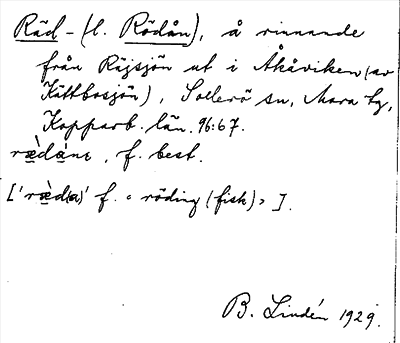 Räd- (l. Rödån), å rinnande
från Räjsjön ut i Åkåviken (av
Kättbosjön), Sollerö sn, Mora tg,
Kopparb. län. 96:67.
ræ̀dánɛ, f. best.
['ræ̀d(a)' f. « röding (fisk) » ].
B. Lindén 1929.